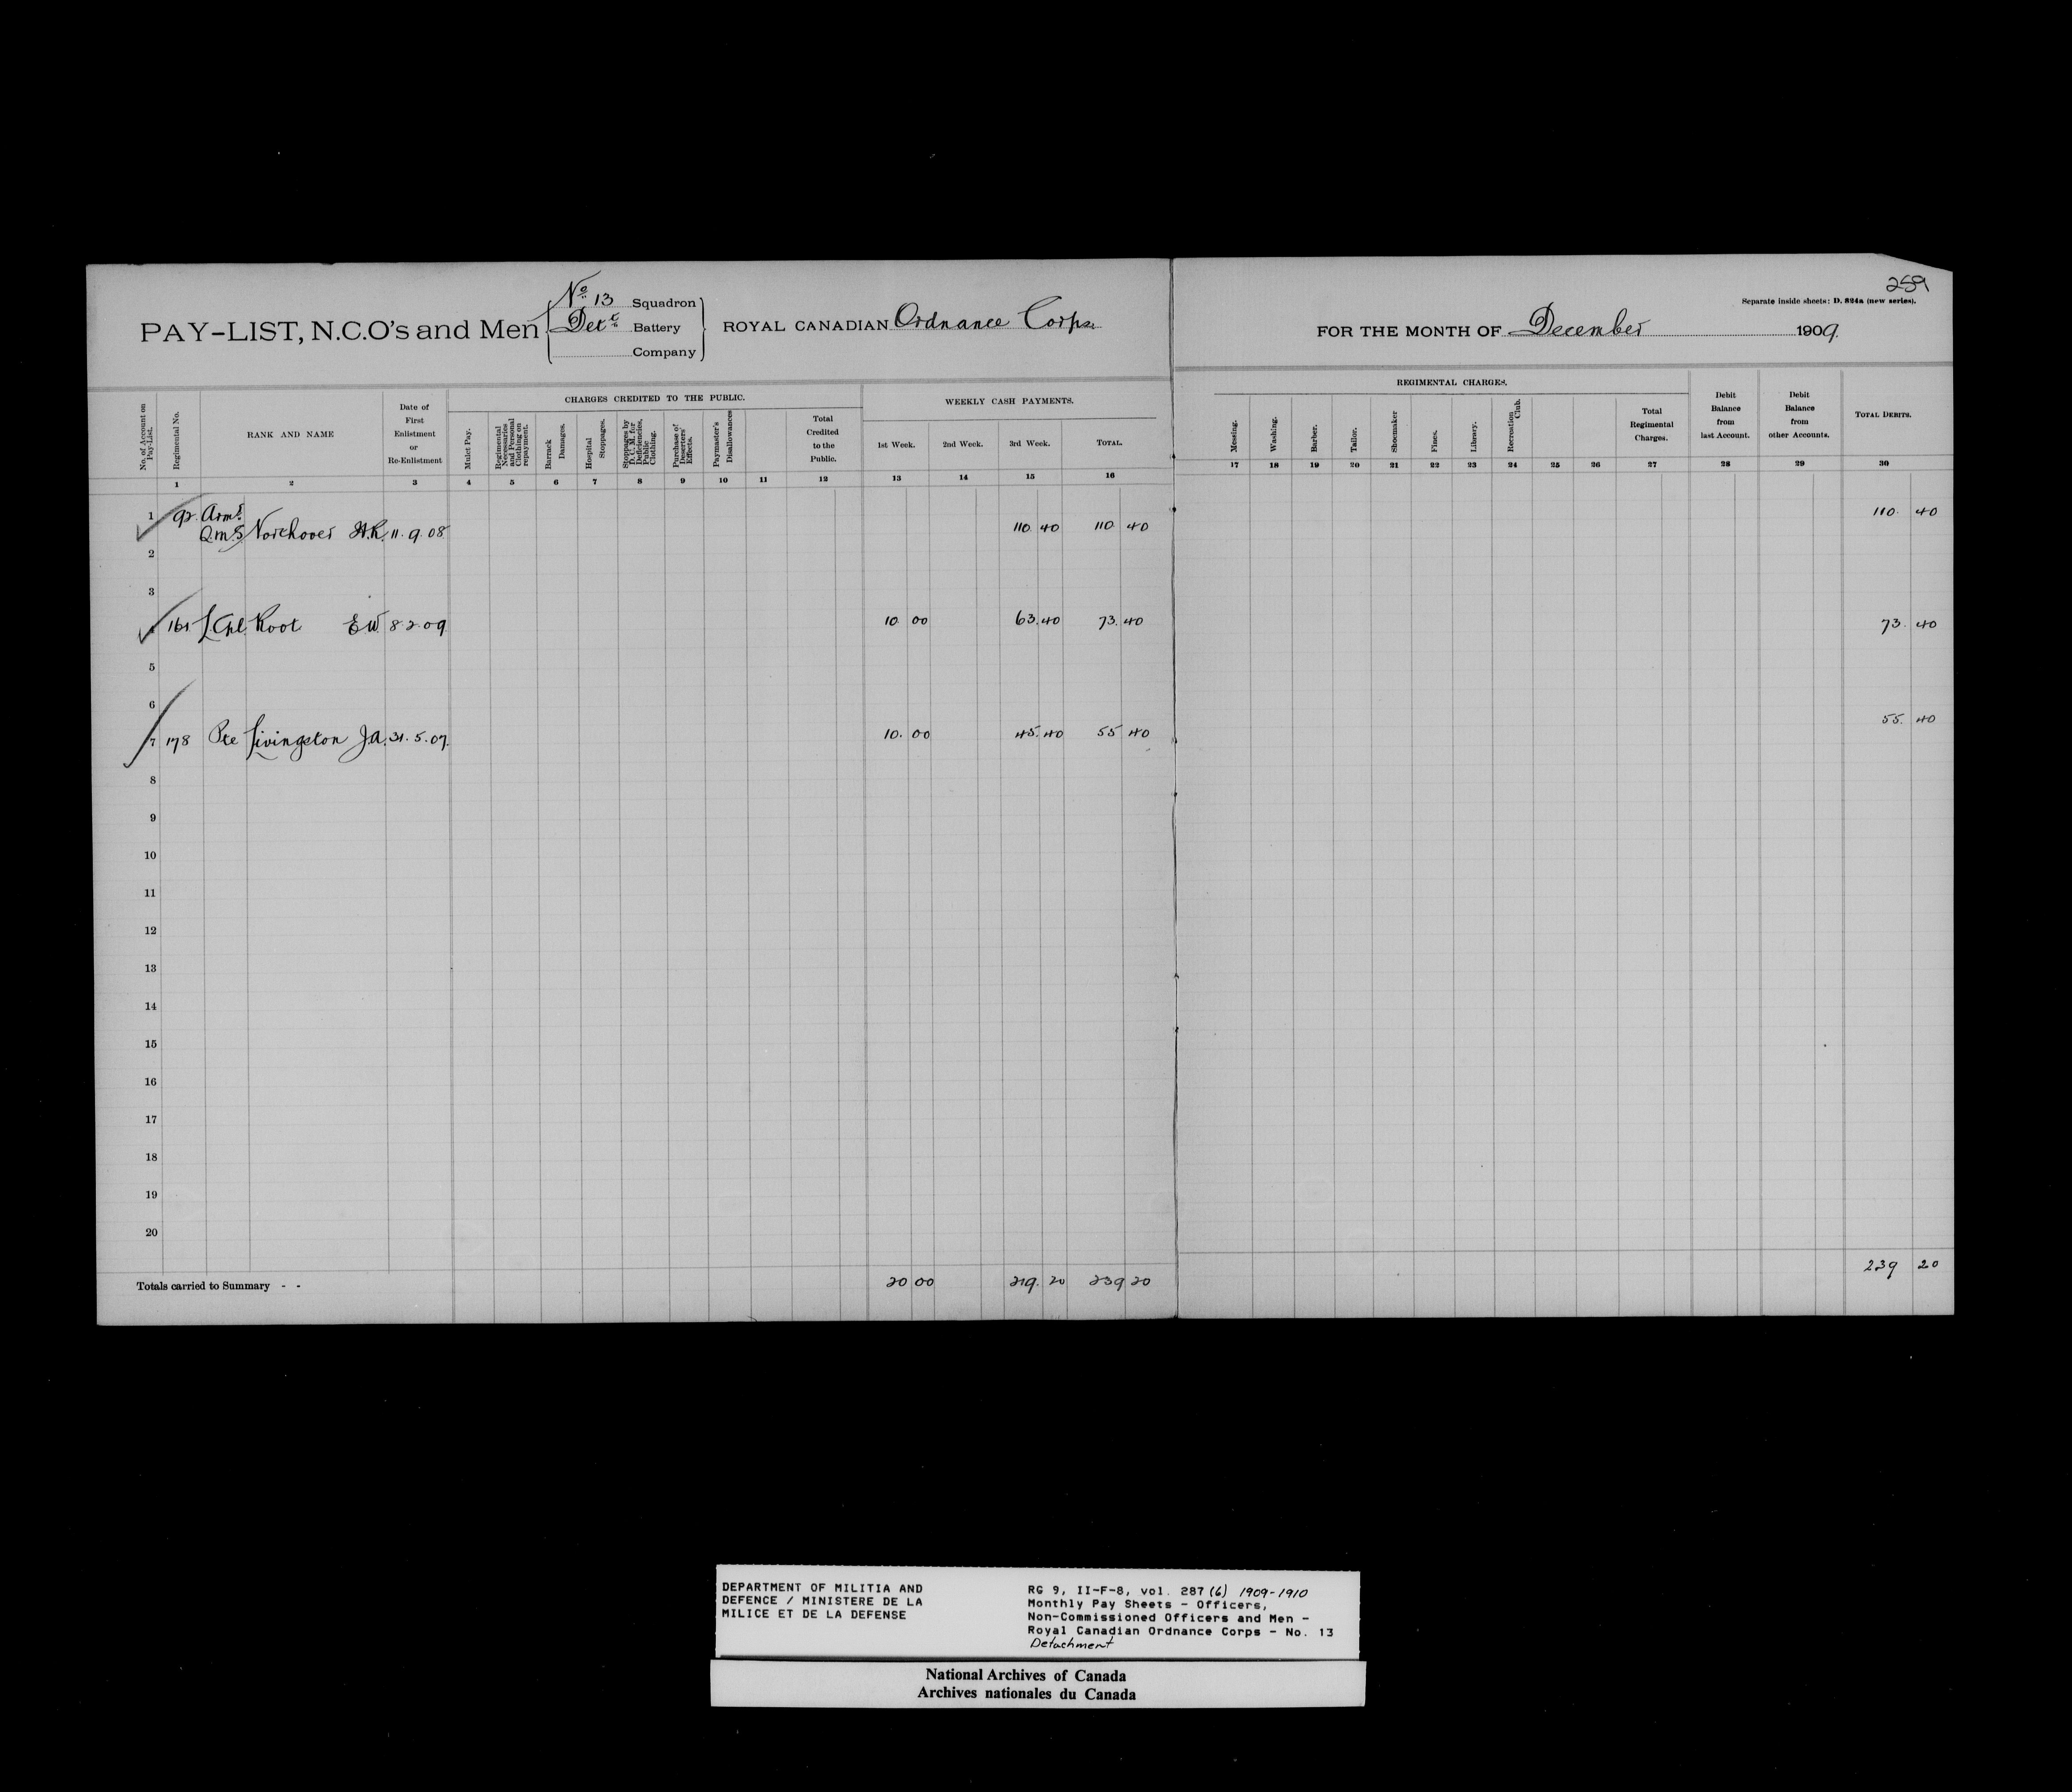 259
Separate inside sheets: D. 824a (new series).
PAY-LIST, N.C.O's and Men
No 13 Squadron
Dett Battery
Company
ROYAL CANADIAN Ordnance Corps.
FOR THE MONTH OF December 1909.
No. of Account on Pay-List.
Regimental No.
RANK AND NAME
Date of First Enlistment or Re-Enlistment
CHARGES CREDITED TO THE PUBLIC.
Mulct Pay.
Regimental Necessaries and Personal Clothing on repayment.
Barrack Damages.
Hospital Stoppages.
Stoppages by D. C. M. for Deficiencies, Public Clothing.
Purchase of Deserters' Effects.
Paymaster's Disallowances
Total Credited to the Public.
WEEKLY CASH PAYMENTS.
1st Week.
2nd Week.
3rd Week.
TOTAL.
REGIMENTAL CHARGES.
Messing.
Washing.
Barber.
Tailor.
Shoemaker
Fines.
Library.
Recreation Club.
Total Regimental Charges.
Debit Balance from last Account.
Debit Balance from other Accounts.
TOTAL DEBITS.
1 2 3 4 5 6 7 8 9 10 11 12 13 14 15 16 17 18 19 20 21 22 23 24 25 26 27 28 29 30
1 92 Armr
Q.m.S Northover H.R. 11. 9. 08 110. 40 110 40 110. 40
2
3
4 161 L.Cpl. Root E W. 8 2 09 10 00 63. 40 73. 40 73. 40
5
6
7 178 Pte Livingston J.A. 31. 5. 07. 10. 00 45. 40 55 40 55. 40
8
9
10
11
12
13
14
15
16
17
18
19
20
Totals carried to Summary - - 20 00 219. 20 239 20 239 20
DEPARTMENT OF MILITIA AND
DEFENCE / MINISTERE DE LA
MILICE ET DE LA DEFENSE
RG 9, II-F-8, vol. 287 (6) 1909-1910
Monthly Pay Sheets - Officers,
Non-Commissioned Officers and Men -
Royal Canadian Ordnance Corps - No. 13
Detachment
National Archives of Canada
Archives nationales du Canada